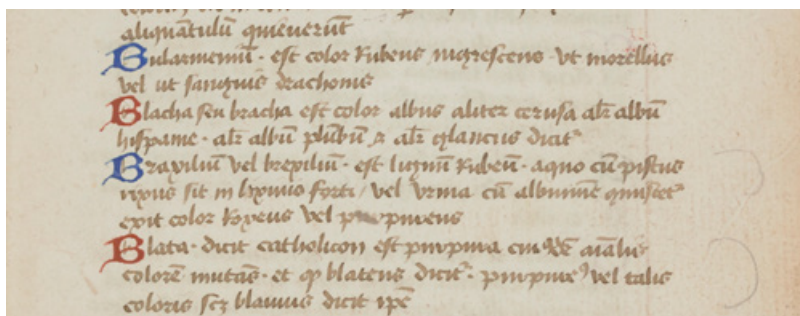 aliquãtulũ quieuerũt
Bularmeniũ · est color Rubeus nigrescens vt morellus
vel ut sanguis drachonis
Blacha seu bracha est color albus aliter cerusa alr̃ albũ
hispanie · alr̃ albũ plũbũ & alr̃ glaucus dicit᷑
Braxiliũ vel brexiliũ · est lignũ Rubeũ · aquo cũ
sit in lixiuio forti / vel vrina cũ albumine
exit color Roxeus vel purpureus
Blata · dicit catholicon est purpura aĩalis
colorẽ mutãs · et blateus dicit᷑ · vel talis
coloris scꝫ blauius dicit ipẽ